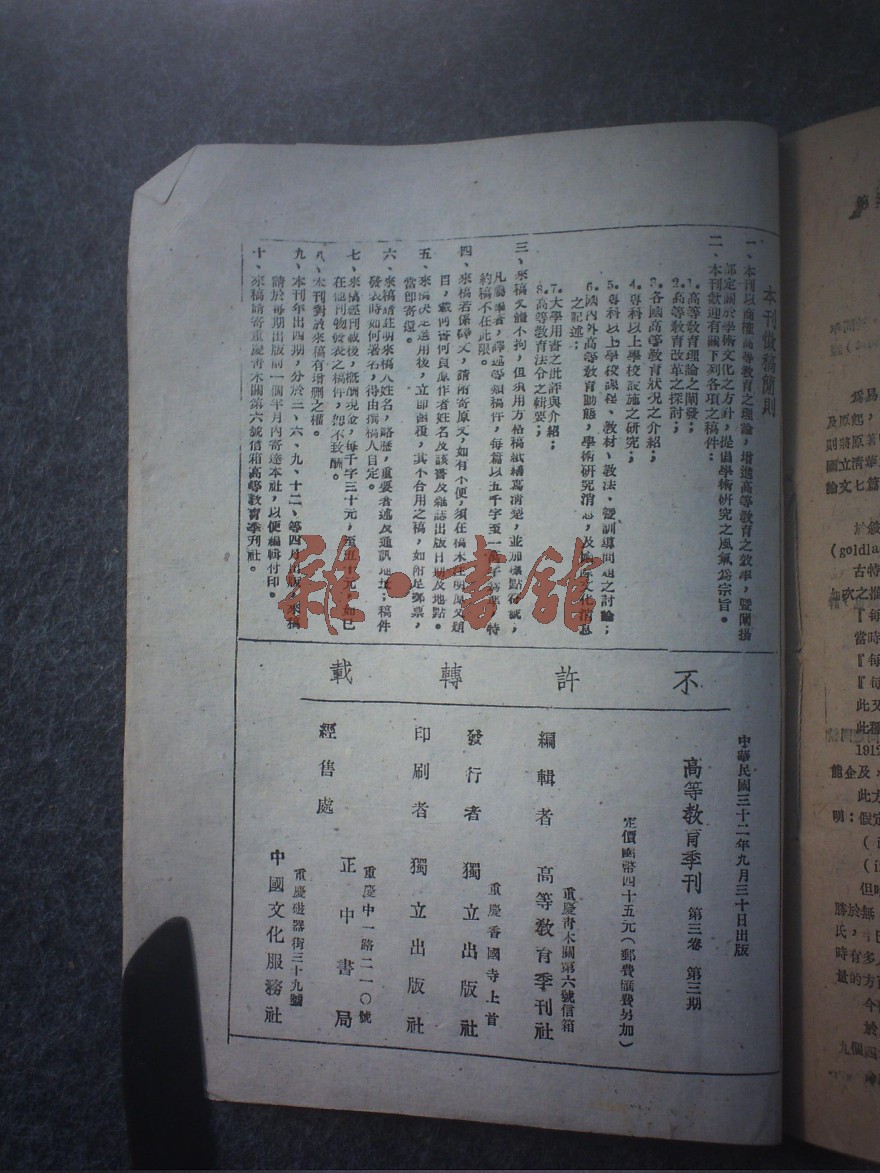 本刊徵稿簡則
一、本刊以商榷高等教育之理論，增進高等教育之效率，暨闡揚
部定關於學術文化之方針，提倡學術研究之風氣為宗旨。
二、本刊歡迎有關下列各項之稿件：
1.高等教育理論之闡發；
2.高等教育改革之探討；
3.各國高等教育狀況之介紹；
4.專科以上學校設施之研究；
5.專科以上學校課程、教材、教法、暨訓導問題之討論；
6.國內外高等教育動態，學術研究消息，及國際文化消息
之記述；
7.大學用書之批評與介紹；
8.高等教育法令之輯要；
三、來稿文體不拘，但須用方格稿紙繕寫清楚，並加標點符號，
凡屬撰著，譯述等類稿件，每篇以五千字至一萬字為率，特
約稿不在此限。
四、來稿若係譯文，請附寄原文，如有不便，須在稿末註明原文題
目，載何書何頁原作者姓名及該書及雜誌出版日期及地點。
五、來稿決定選用後，立即函復，其不合用之稿，如附足郵票，
當即寄還。
六、來稿請註明來稿人姓名，略歷，重要著述及通訊地址；稿件
發表時如何署名，得由撰稿人自定。
七、來稿經刊載後，概酬現金，每千字三十元，至五十元，如已
在他刊物發表之稿件，恕不致酬。
八、本刊對於來稿有增刪之權。
九、本刊年出四期，分於三、六、九、十二、等四月出版，來稿
請於每期出版前一個半月內寄達本社，以便編輯付印。
十、來稿請寄重慶青木關第六號信箱高等教育季刊社。
雜·書館
不許轉載
中華民國三十二年九月三十日出版
高等教育季刊 第三卷 第三期
定價國幣四十五元（郵費匯費另加）
重慶青木關第六號信箱
編輯者 高等教育季刊社
重慶香國寺上首
發行者 獨立出版社
印刷者 獨立出版社
重慶中一路二一〇號
經售處 正中書局
重慶磁器街三十九號
中國文化服務社
為易
及原型，
國立清華
論文七篇
於
(goldla
古特
『每
當時
『每
『每
此又
此種
1912
能企及
此方
明：假定
(i
(i
但
勝於無
時有多
量的方
今
於
九個四